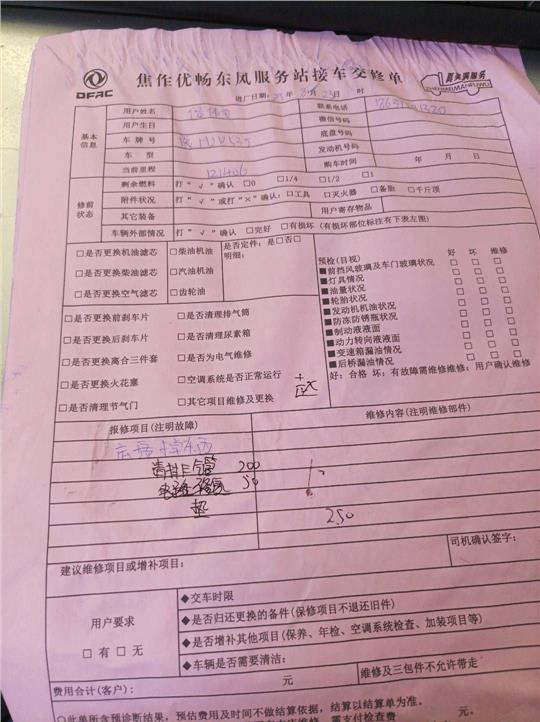 DFAC
焦作优畅东风服务站接车交修单
真末调服务
ZHENMEIMANFUWU
进厂日期: 年 月 日 时
基本信息
用户姓名 联系电话
用户生日 微信号码
车 牌 号 底盘号码
车 型 发动机号码
当前里程 121406 购车时间 年 月 日
修前状态
剩余燃料 打“√”确认 □0 □1/4 □1/2 □1
附件状况 打“√”或打“×”确认:□工具 □灭火器 □备胎 □千斤顶
其它装备 用户寄存物品
车辆外部情况 打“√”确认 □完好 □有损坏(有损坏部位标注有下表左图)
□是否更换机油滤芯 □柴油机油 是否定件:是□否□
明细:
□是否更换柴油滤芯 □汽油机油
□是否更换空气滤芯 □齿轮油
预检(目视) 好 坏 维修
■前挡风玻璃及车门玻璃状况 □ □ □
■灯具情况 □ □ □
■油量状况 □ □ □
■轮胎状况 □ □ □
■发动机机油状况 □ □ □
■防冻防锈瓶状况 □ □ □
■制动液液面 □ □ □
■动力转向液液面 □ □ □
■变速箱漏油情况 □ □ □
■后桥漏油情况 □ □ □
好:合格 坏:有故障需维修维修:用户确认维修
□是否更换前刹车片 □是否清理排气筒
□是否更换后刹车片 □是否清理尿素箱
□是否更换离合三件套 □是否为电气维修
□是否更换火花塞 □空调系统是否正常运行
□是否清理节气门 □其它项目维修及更换
报修项目(注明故障) 维修内容(注明维修部件)
200
50
垫
250
建议维修项目或增补项目:
司机确认签字:
用户要求
□有 □无
◆交车时限
◆是否归还更换的备件(保修项目不退还旧件)
◆是否增补其他项目(保养、年检、空调系统检查、加装项目等)
◆车辆是否需要清洁:
费用合计(客户): 元 维修及三包件不允许带走
○此单所含预诊断结果,预估费用及时间不做结算依据,结算以结算单为准。
需支付检查费 元。